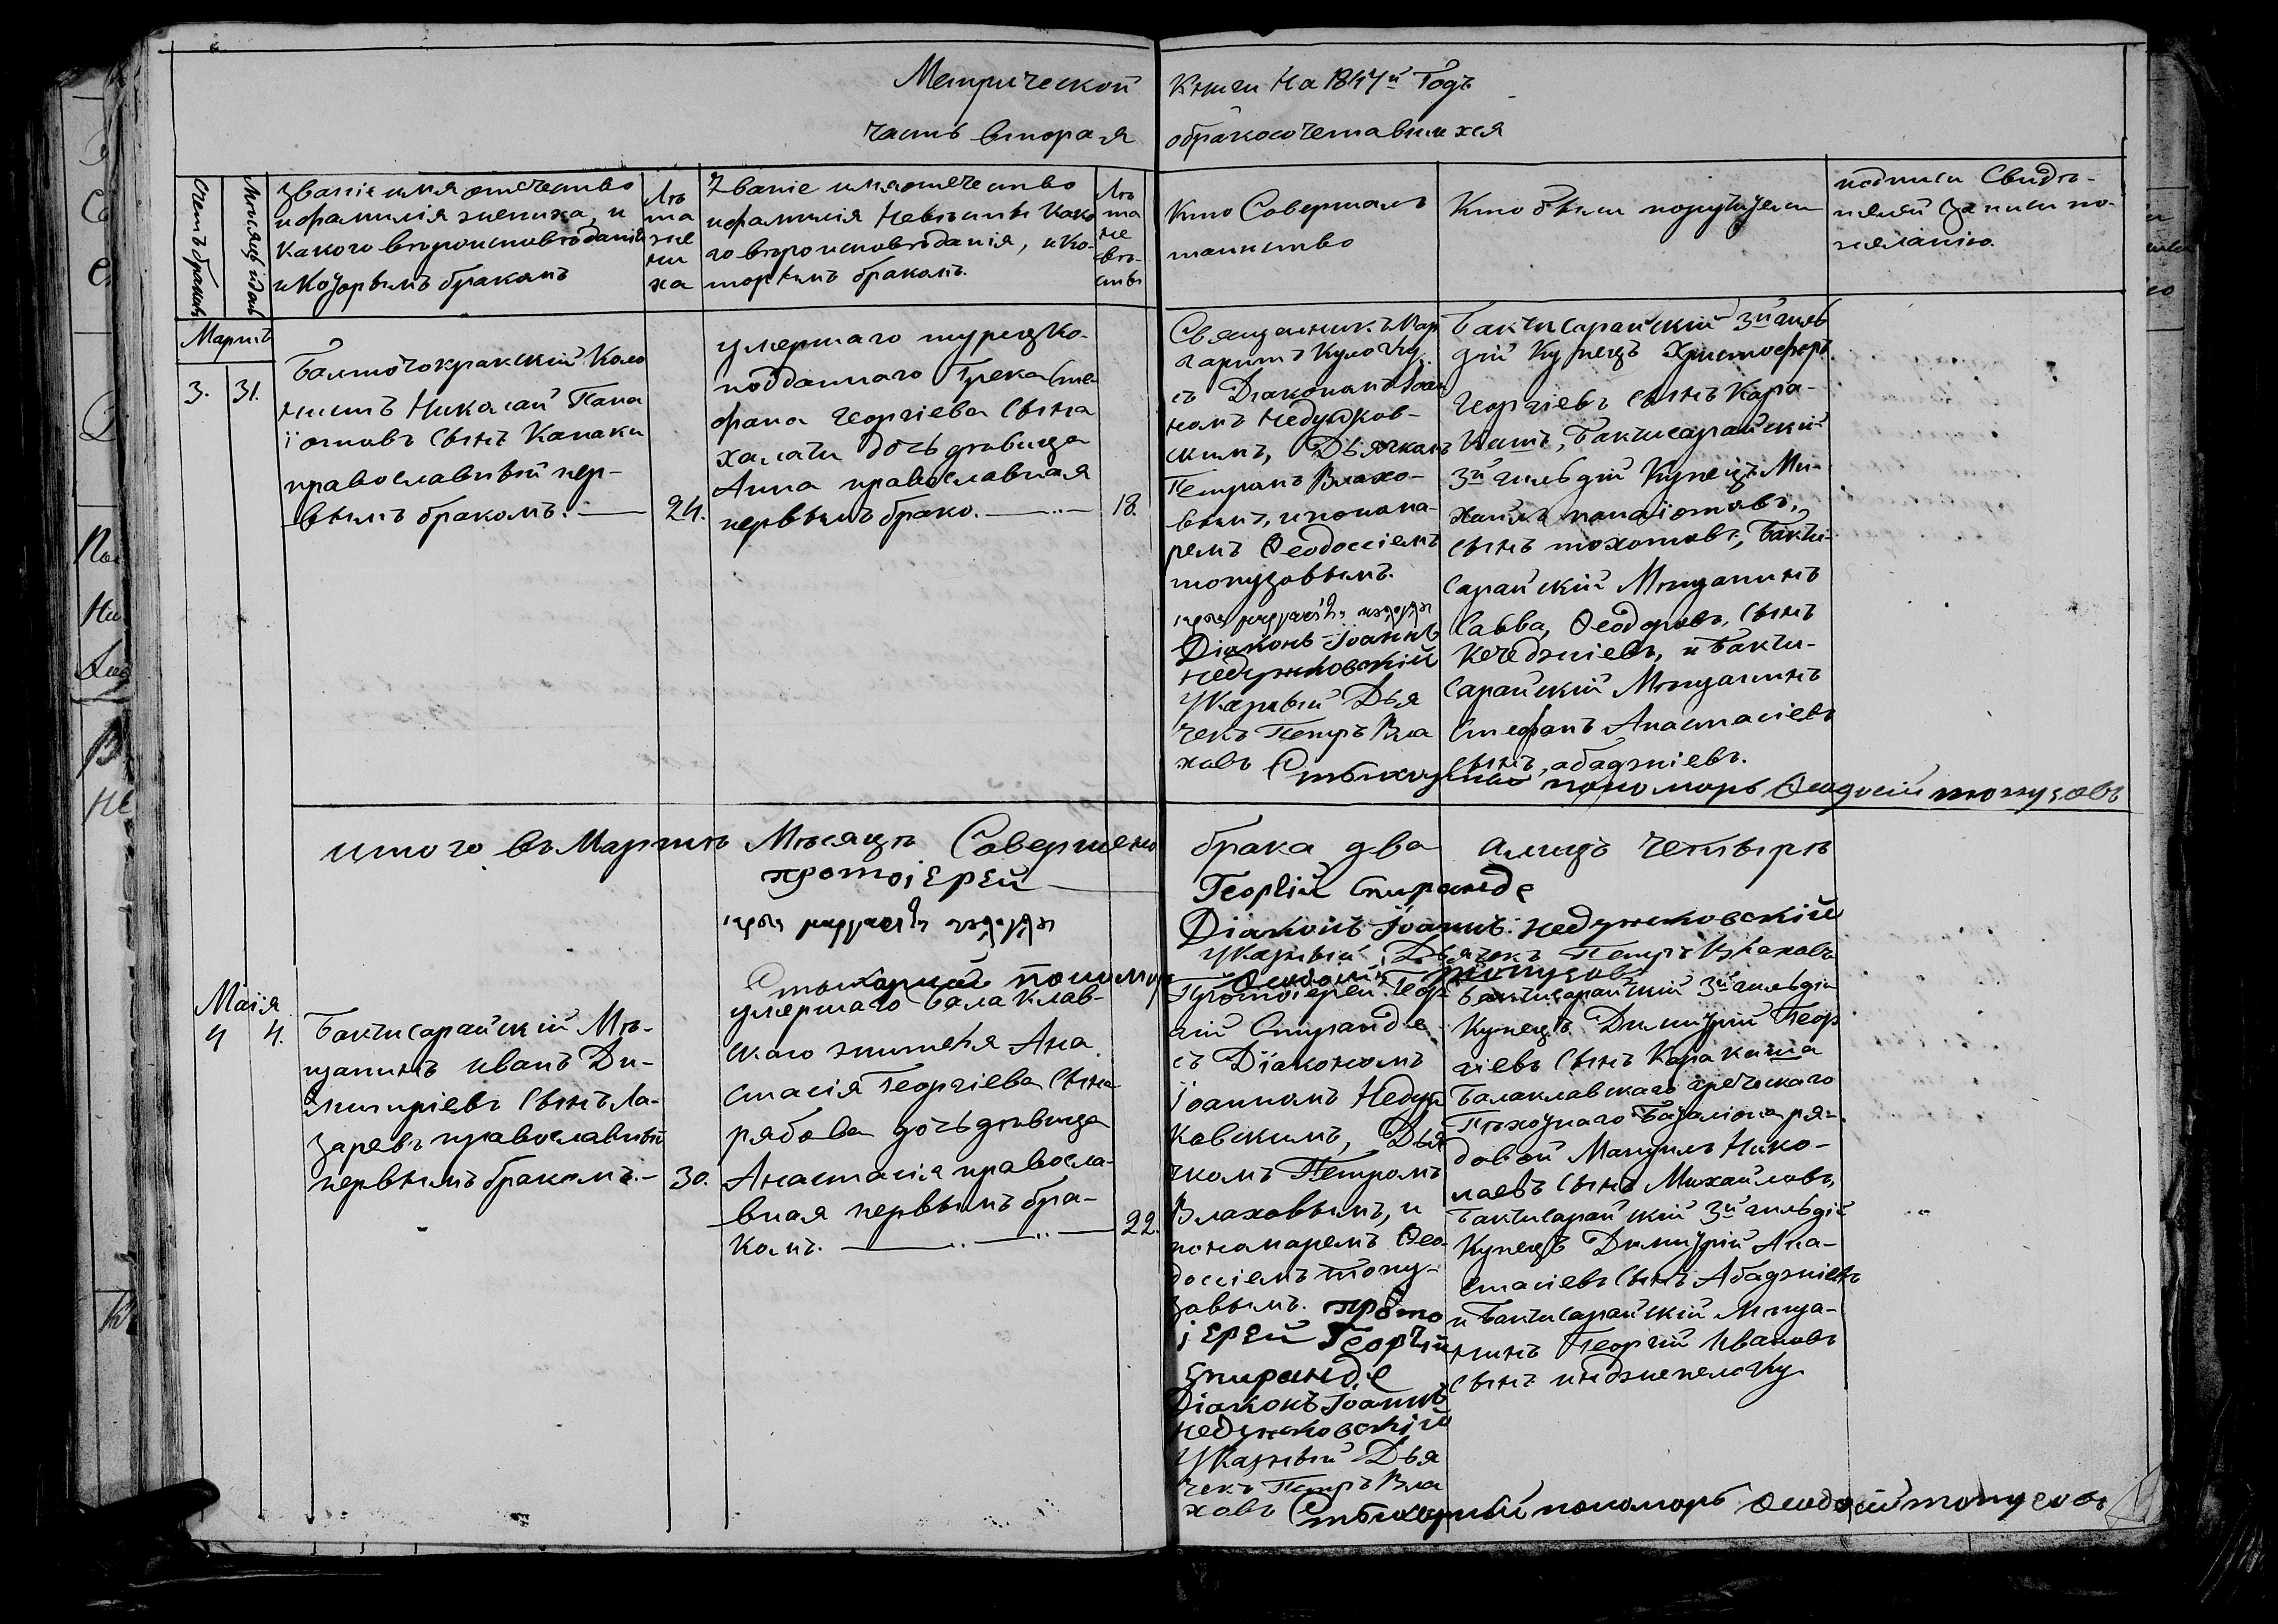 Метрической книги на 1847й Годъ
часть вторая обракосочетавшихся
Счетъ браковъ
Мѣсяцъ и день
Званіе имя отечество
и фамилія жениха, и
какого вѣроисповѣданія
и которымъ бракомъ
Лѣ
та
же
ни
ха
Званіе имя отечество
и фамилія невѣсты како
го вѣроисповѣданія, и ко-
торымъ бракомъ.
Лѣ
та
не
вѣ-
сты
Кто Совершалъ
таинство
Кто были поручители
подписи Свидѣ-
телей записи по
желанію.
Мартъ
3. 31.
Николай Папа
іотовъ сынъ Капаки
православный пер-
вымъ бракомъ.
24.
умершаго турецко-
подданнаго Грека Сте
фана Георгіева сына
халачи дочь дѣвица
Анна православная
первымъ брако.
18.
Священникъ Мар
гаритъ
съ Діакономъ Іоан
номъ Недужков-
скимъ, Дьячкомъ
Петромъ Влахо-
вымъ, и понома-
ремъ Феодосіемъ
топузовымъ.
Діаконъ Іоаннъ
недужковскій
Указный Дья
чекъ Петръ Вла
ховъ Стыхарный пономарь Феодосій топузовъ
Бакчисарайскій 3й гиль
дій Купецъ Христофоръ
Георгіевъ сынъ Кара-
кашъ, Бакчисарайскій
3й гильдій Купецъ Ми-
хаилъ панаіотовъ,
сынъ тохотовъ, Бакчи-
сарайскій Мѣщанинъ
Савва, Феодоровъ, сынъ
Кечеджіевъ, и Бакчи-
сарайскій Мѣщанинъ
Стефанъ Анастасіевъ
сынъ, абаджіевъ.
итого въ Мартѣ Мѣсяцѣ Совершено брака два а лицъ четырѣ
протоіерей Георгій Спиранде
Діаконъ Іоаннъ недужковскій
Указный Дьячекъ Петръ Влаховъ
Стыхарный пономарь Феодосій топузовъ
Маія
4 4.
Бакчисарайскій Мѣ-
щанинъ иванъ Ди-
митріевъ сынъ Ла-
заревъ православный
первымъ бракомъ.
30.
умершаго Балаклав-
скаго жителя Ана
стасія Георгіева сына
рябова дочь дѣвица
Анастасія правосла-
вная первымъ бра-
комъ.
22.
Протоіерей Геор
гій Спиранде
съ Діакономъ
Іоанномъ Недуж
ковскимъ, Дья
чкомъ Петромъ
Влаховымъ, и
пономаремъ Фео-
досіемъ топу-
зовымъ. прото
іерей Георгій
Спиранде
Діаконъ Іоаннъ
недужковскій
Указный Дья
чекъ Петръ Вла
ховъ Стыхарный пономарь Феодосій топузовъ
Бакчисарайскій 3й гильдіи
Купецъ Димитрій Геор
гіевъ сынъ Каракаша
Балаклавскаго греческаго
Пѣхотнаго Баталіона ря-
довой Мануилъ Нико-
лаевъ сынъ Михайловъ,
Бакчисарайскій 3й гильдій
Купецъ Димитрій Ана-
стасіевъ сынъ Абаджіевъ
и Бакчисарайскій Мѣща-
нинъ Георгій Ивановъ
сынъ